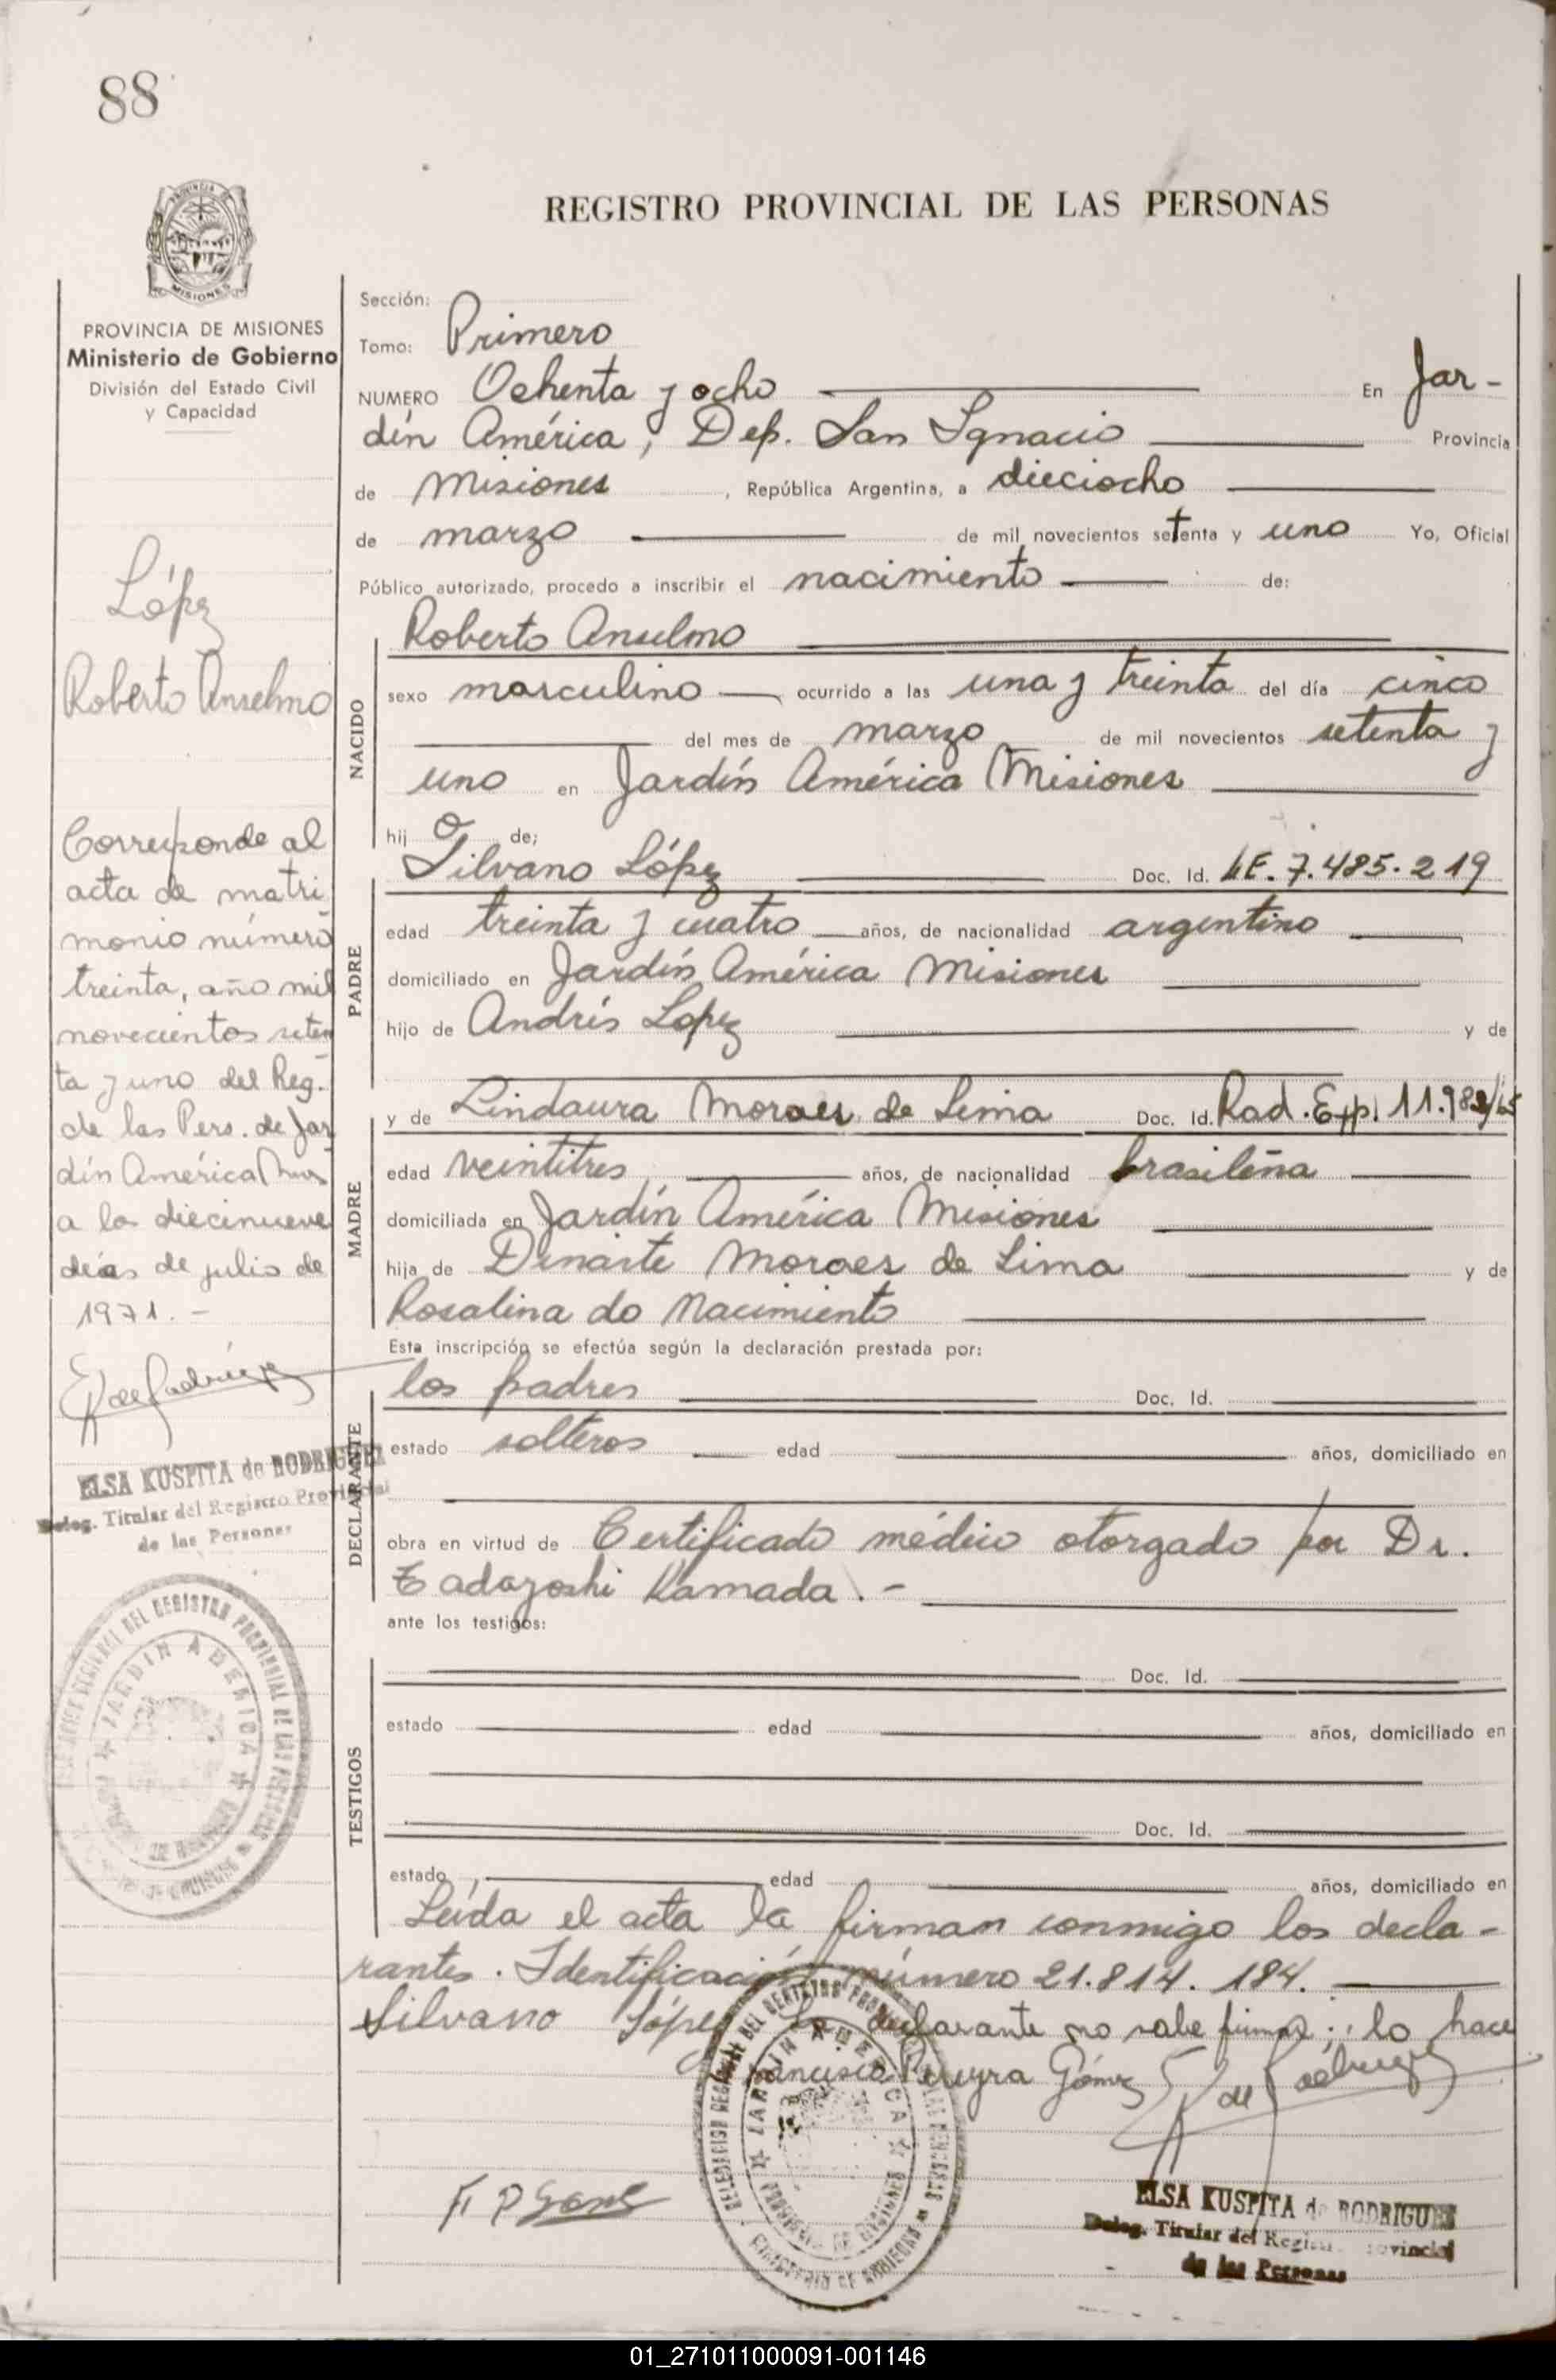 88
REGISTRO PROVINCIAL DE LAS PERSONAS
MISIONES
PROVINCIA DE MISIONES
Ministerio de Gobierno
División del Estado Civil
y Capacidad
López
Roberto Anselmo
Corresponde al
acta de matri
monio número
treinta, año mil
novecientos seten
ta y uno del Reg.
de las Pers. de Jar
dín América
a los diecinueve
días de julio de
1971.-
ELSA KUSPITA de RODRIGUEZ
Deleg. Titular del Registro Provincial
de las Personas
Sección:
Tomo: Primero
NUMERO Ochenta y ocho En Jar-
dín América, Dep. San Ignacio Provincia
de Misiones, República Argentina, a dieciocho
de marzo de mil novecientos setenta y uno Yo, Oficial
Público autorizado, procedo a inscribir el nacimiento de:
NACIDO
Roberto Anselmo
sexo masculino ocurrido a las una y treinta del día cinco
del mes de marzo de mil novecientos setenta y
uno en Jardín América Misiones
hijo de;
PADRE
Silvano López Doc. Id. LE. 7.485.219
edad treinta y cuatro años, de nacionalidad argentino
domiciliado en Jardín América Misiones
hijo de Andrés Lopez y de
MADRE
y de Lindaura Moraes de Lima Doc. Id. Rad. Exp. 11.982/65
edad veintitres años, de nacionalidad brasileña
domiciliada en Jardín América Misiones
hija de Dinarte Moraes de Lima y de
Rosalina do Nacimiento
Esta inscripción se efectúa según la declaración prestada por:
DECLARANTE
los padres Doc. Id.
estado solteros edad años, domiciliado en
obra en virtud de Certificado médico otorgado por Dr.
Tadayoshi Kamada.-
ante los testigos:
TESTIGOS
Doc. Id.
estado edad años, domiciliado en
Doc. Id.
estado edad años, domiciliado en
Leída el acta la firman conmigo los decla-
rantes. Identificación número 21.814.184.
Silvano López La declarante no sabe firmar: lo hace
Francisco Pereyra Gómez
DELEGACION REGIONAL DEL REGISTRO PROVINCIAL DE LAS PERSONAS
JARDIN AMERICA
PROVINCIA DE MISIONES
MINISTERIO DE GOBIERNO
ELSA KUSPITA de RODRIGUEZ
Deleg. Titular del Registro Provincial
de las Personas
01_271011000091-001146